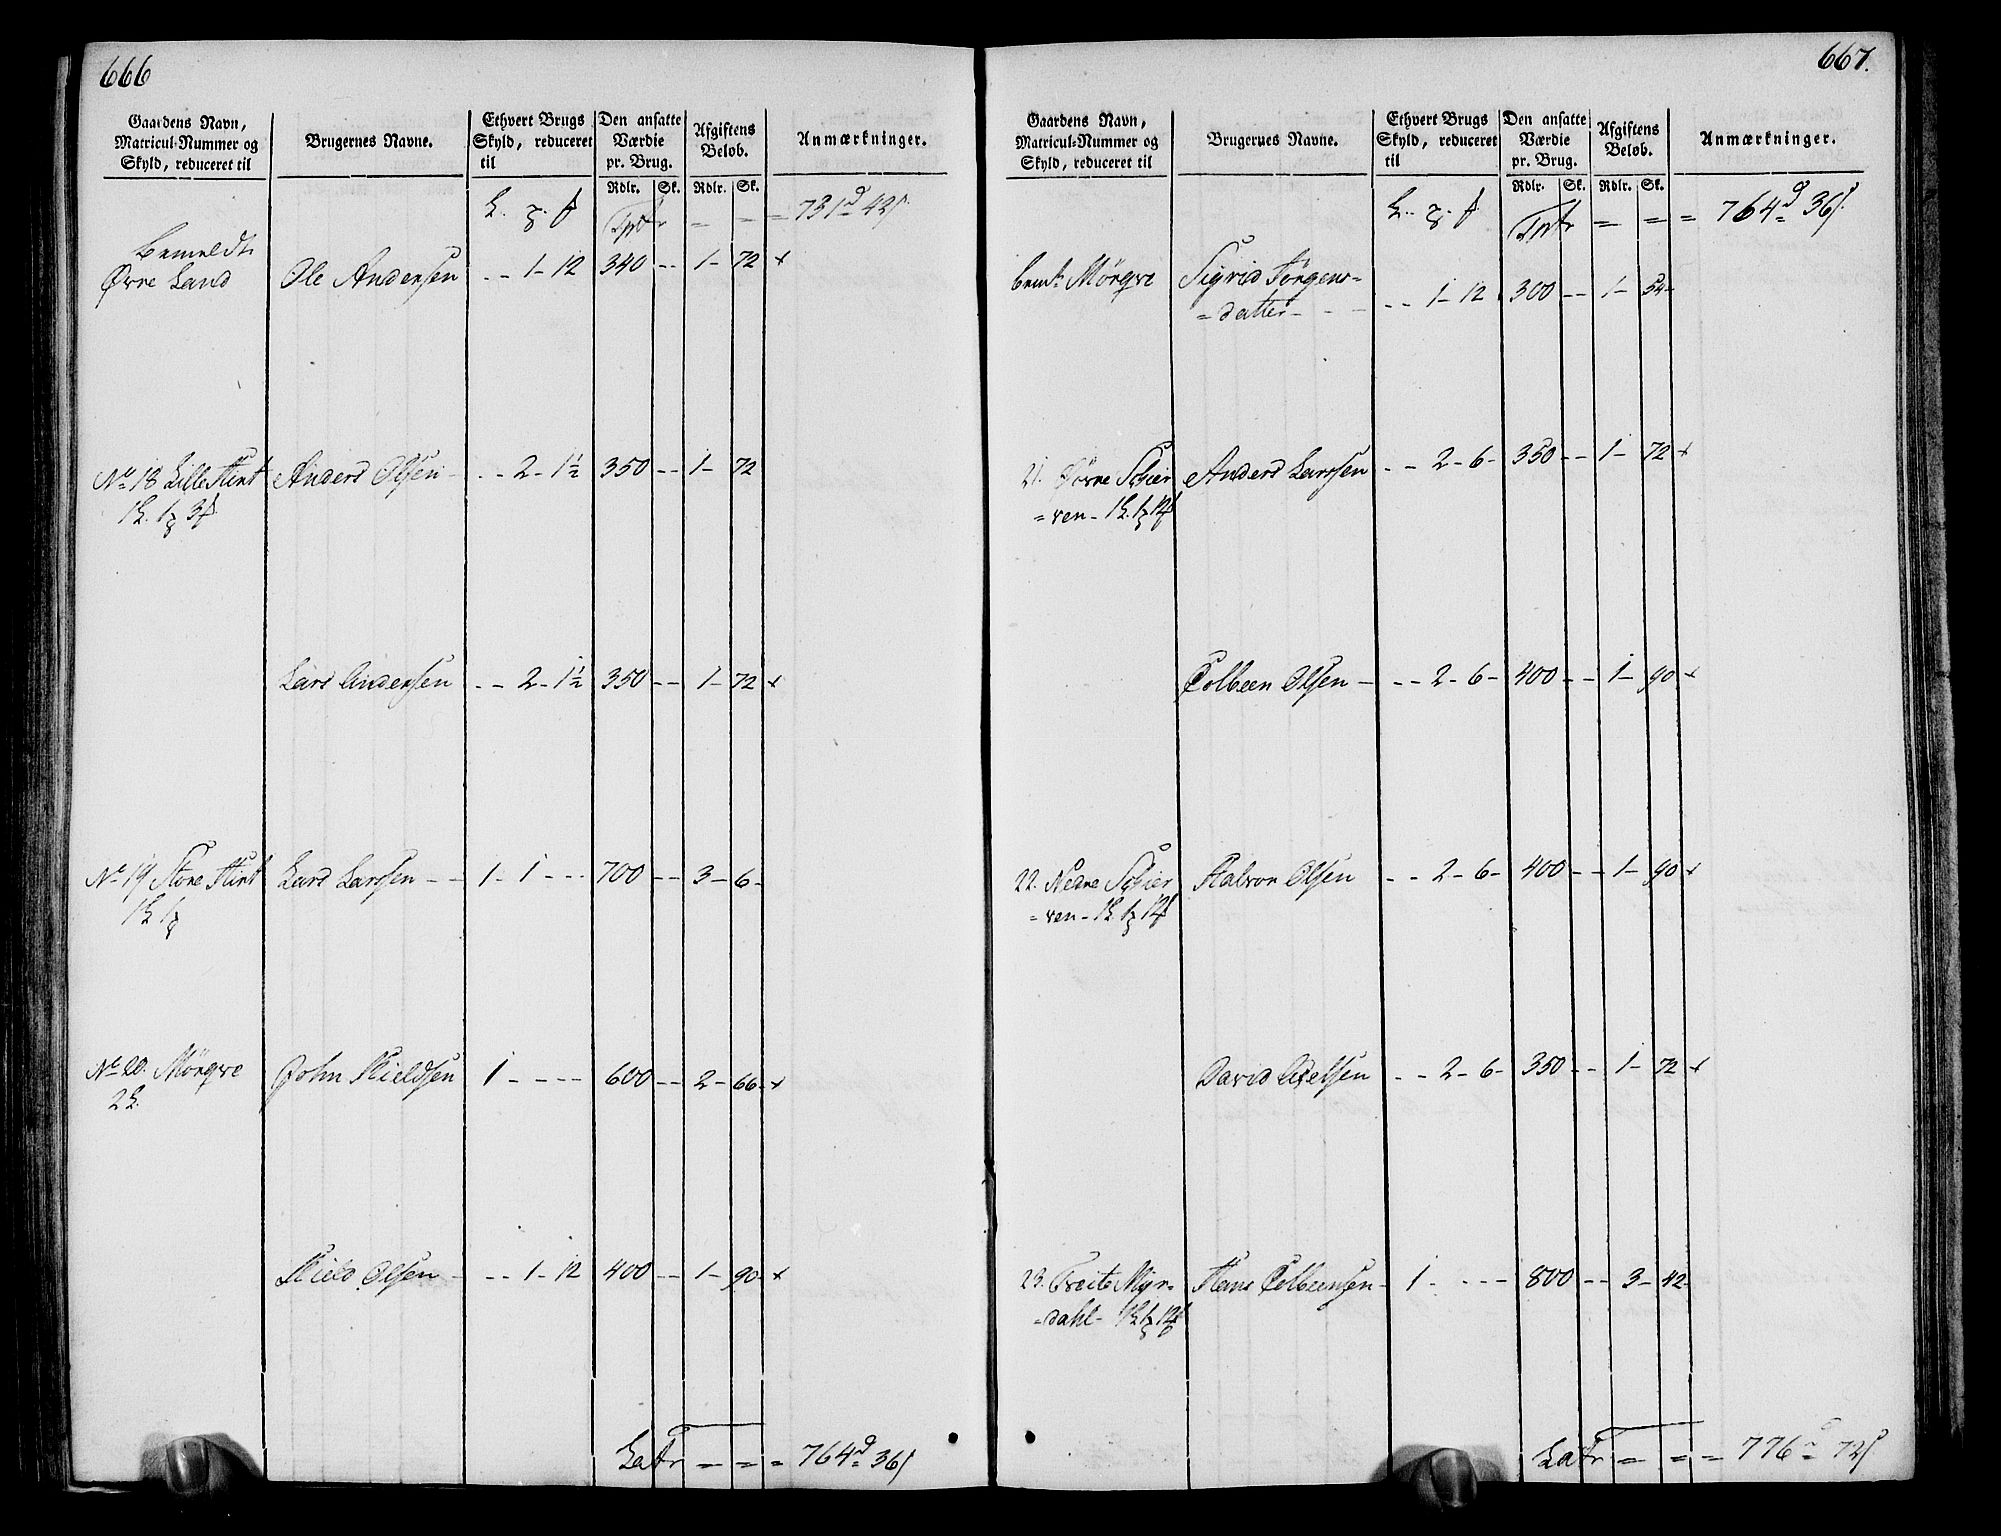 666
Gaardens Navn, Matricul-Nummer og Skyld, reduceret til
Brugernes Navne.
Ethvert Brugs Skyld, reduceret til
Den ansatte Værdie pr. Brug.
Afgiftens Beløb.
Anmærkninger.
Rdlr. Sk. Rdlr. Sk.
Tpr = = = 731d 42s.
Bemeldte
Øvre Land Ole Andersen - - 1 - 12 340 - - 1 - 72 +
No 18 Lille Flint Anders Olsen - - - 2 - 1½ 350 - - 1 - 72
Lars Andersen - - 2 - 1½ 350 - - 1 - 72 +
No 19 Store Flint Lars Larssen - - 1 - 1 - - - 700 - - 3 - 6 -
No 20. Mörqve John Kieldsen 1 - - - - 600 - - 2 - 66 - +
Kield Olsen - - - 1 - 12 400 - - 1 - 90 - +
LaTr = = = 764d 36s
667.
Gaardens Navn, Matricul-Nummer og Skyld, reduceret til
Brugernes Navne.
Ethvert Brugs Skyld, reduceret til
Den ansatte Værdie pr. Brug.
Afgiftens Beløb.
Anmærkninger.
Rdlr. Sk. Rdlr. Sk.
Tpr = = = 764d 36s.
bemte Mörqve Sigrid Jörgens-
= datter - - - - - 1 - 12 300 - - 1 - 54 -
21. Øvre Schier Anders Larssen - - 2 - 6 - 350 - - 1 - 72 +
= ven -
Tolbeen Olsen - - - 2 - 6 - 400 - - 1 - 90 - +
22. Nedre Schier Halvor Olsen - - 2 - 6 - 400 - - 1 - 90 +
= ven -
David Axelsen - - 2 - 6 - 350 - - 1 - 72 +
23. Treite Myr- Hans Tolbeensen - 1 - - - - 800 - - 3 - 42 -
= dahl -
LaTr = = = 776d 72s